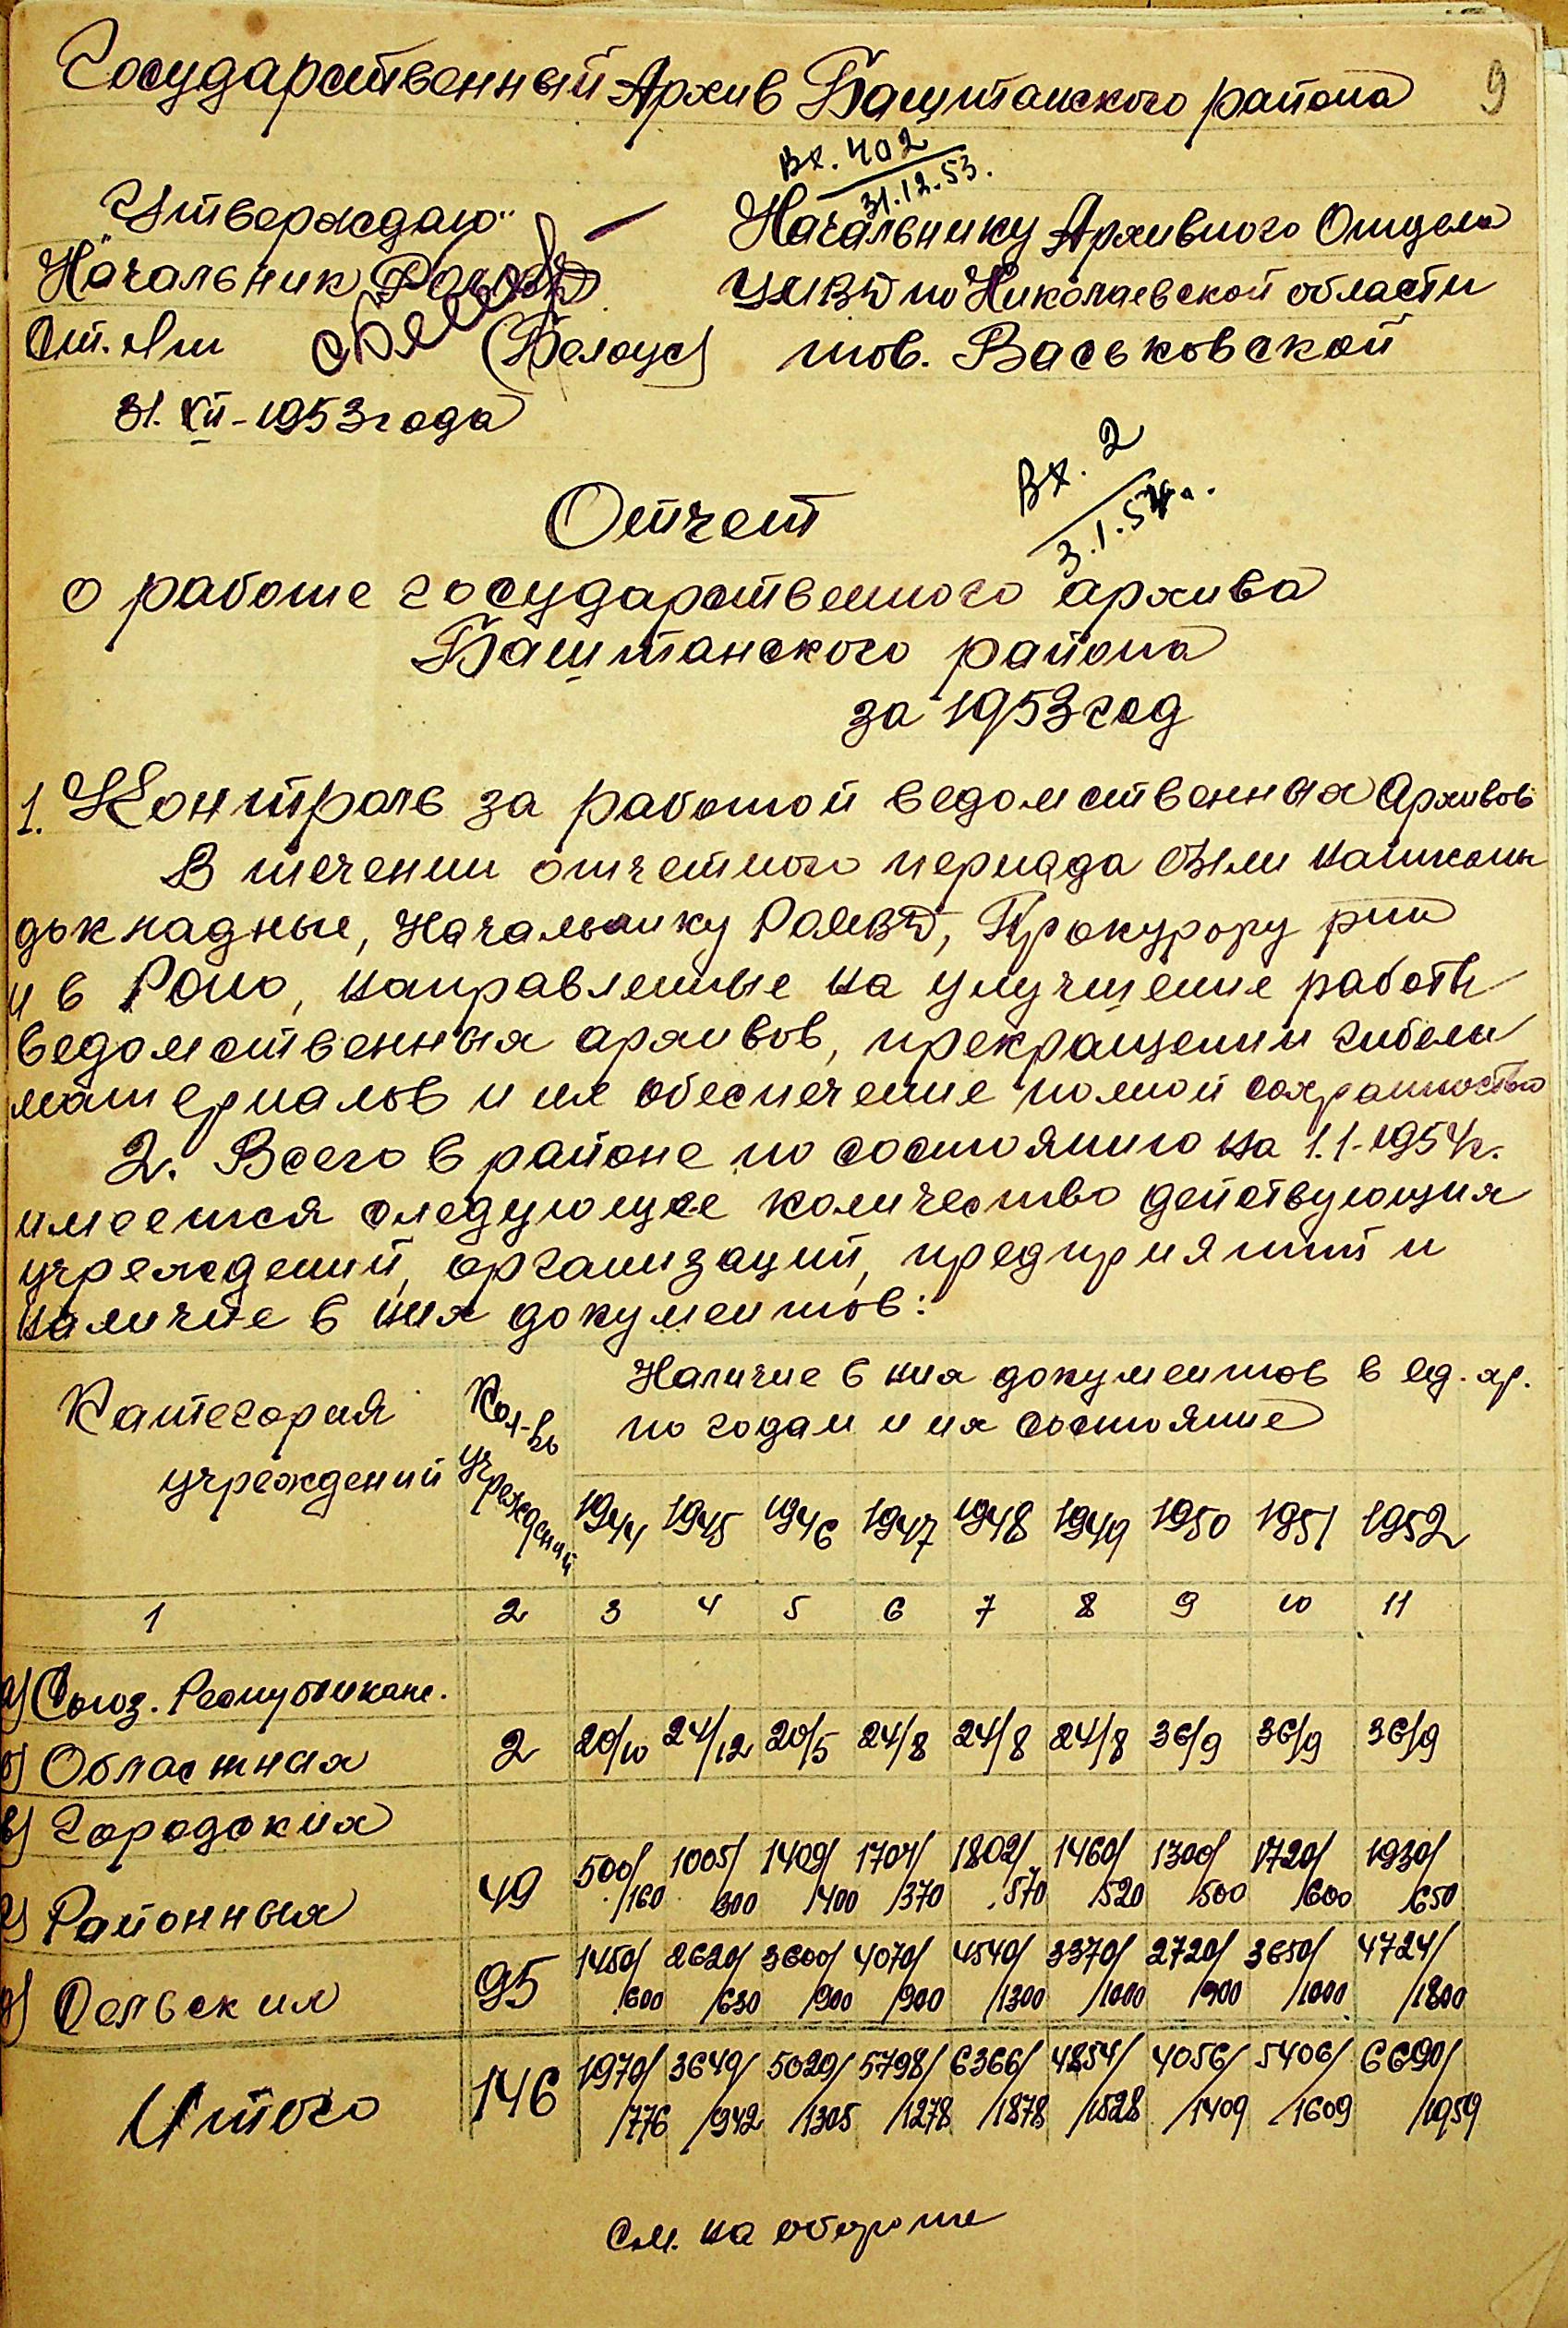 Государственный Архив Баштанского района
9
Вх. 402
31.12.53.
"Утверждаю"
Начальник
Ст. Л-т (Белоус)
31. XII-1953 года
Начальнику Архивного Отдела
УМВД по Николаевской области
тов. Васьковской
Вх. 2
3.1.54 г.
Отчет
о работе государственного архива
Баштанского района
за 1953 год
1. Контроль за работой ведомственных Архивов
В течении отчетного периода были написаны
докладные, Начальнику РОМВД, Прокурору р-на
и в Роно, направленные на улучшение работы
ведомственных архивов, прекращении гибели
материалов и их обеспечение полной сохранностью
2. Всего в районе по состоянию на 1.1-1954 г.
имеется следующее количество действующих
учреждений, организаций, предприятий и
наличие в них документов:
Категория учреждений
Кол-во учреждений
Наличие в них документов в ед. хр.
по годам и их состояние
1944 1945 1946 1947 1948 1949 1950 1951 1952
1 2 3 4 5 6 7 8 9 10 11
а) Союз. Республиканс.
б) Областных 2 20/10 24/12 20/5 24/8 24/8 24/8 36/9 36/9 36/9
в) Городских
г) Районных 49 500/160 1005/300 1409/400 1704/370 1802/570 1460/520 1300/500 1720/600 1930/650
д) Сельских 95 1450/600 2620/630 3600/900 4070/900 4540/1300 3370/1000 2720/900 3650/1000 4724/1300
Итого 146 1970/776 3649/942 5029/1305 5798/1278 6366/1878 4854/1528 4056/1409 5406/1609 6690/1959
см. на обороте